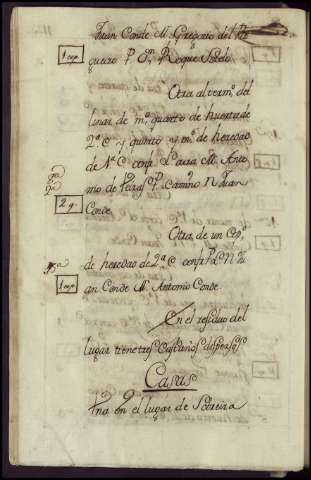 Juan Conde M. Gregorio del Ri
guero P. Dn. Roque Sotelo
1 cep.
Otra al term.o del
linar de m.o quarto de huerta de
2.a C y quinto y m.o de heredad
de N.a C conf. L M. Anto
nio de P. Camino N Juan
Conde
2 q.
Otra de un Cep.n
de heredad de 2.a C conf. P L N Ju
an Conde M. Antonio Conde
1 cep.
En el residuo del
lugar tiene tres Castaños dispersos
Casas
Una en el lugar de Soveira